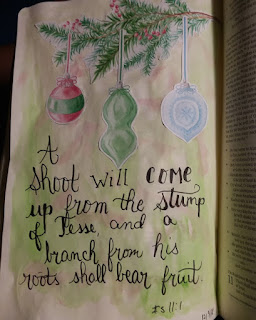 A
Shoot will come
up from the stump
of Jesse, and a
branch from his
roots shall bear fruit.
Is 11:1